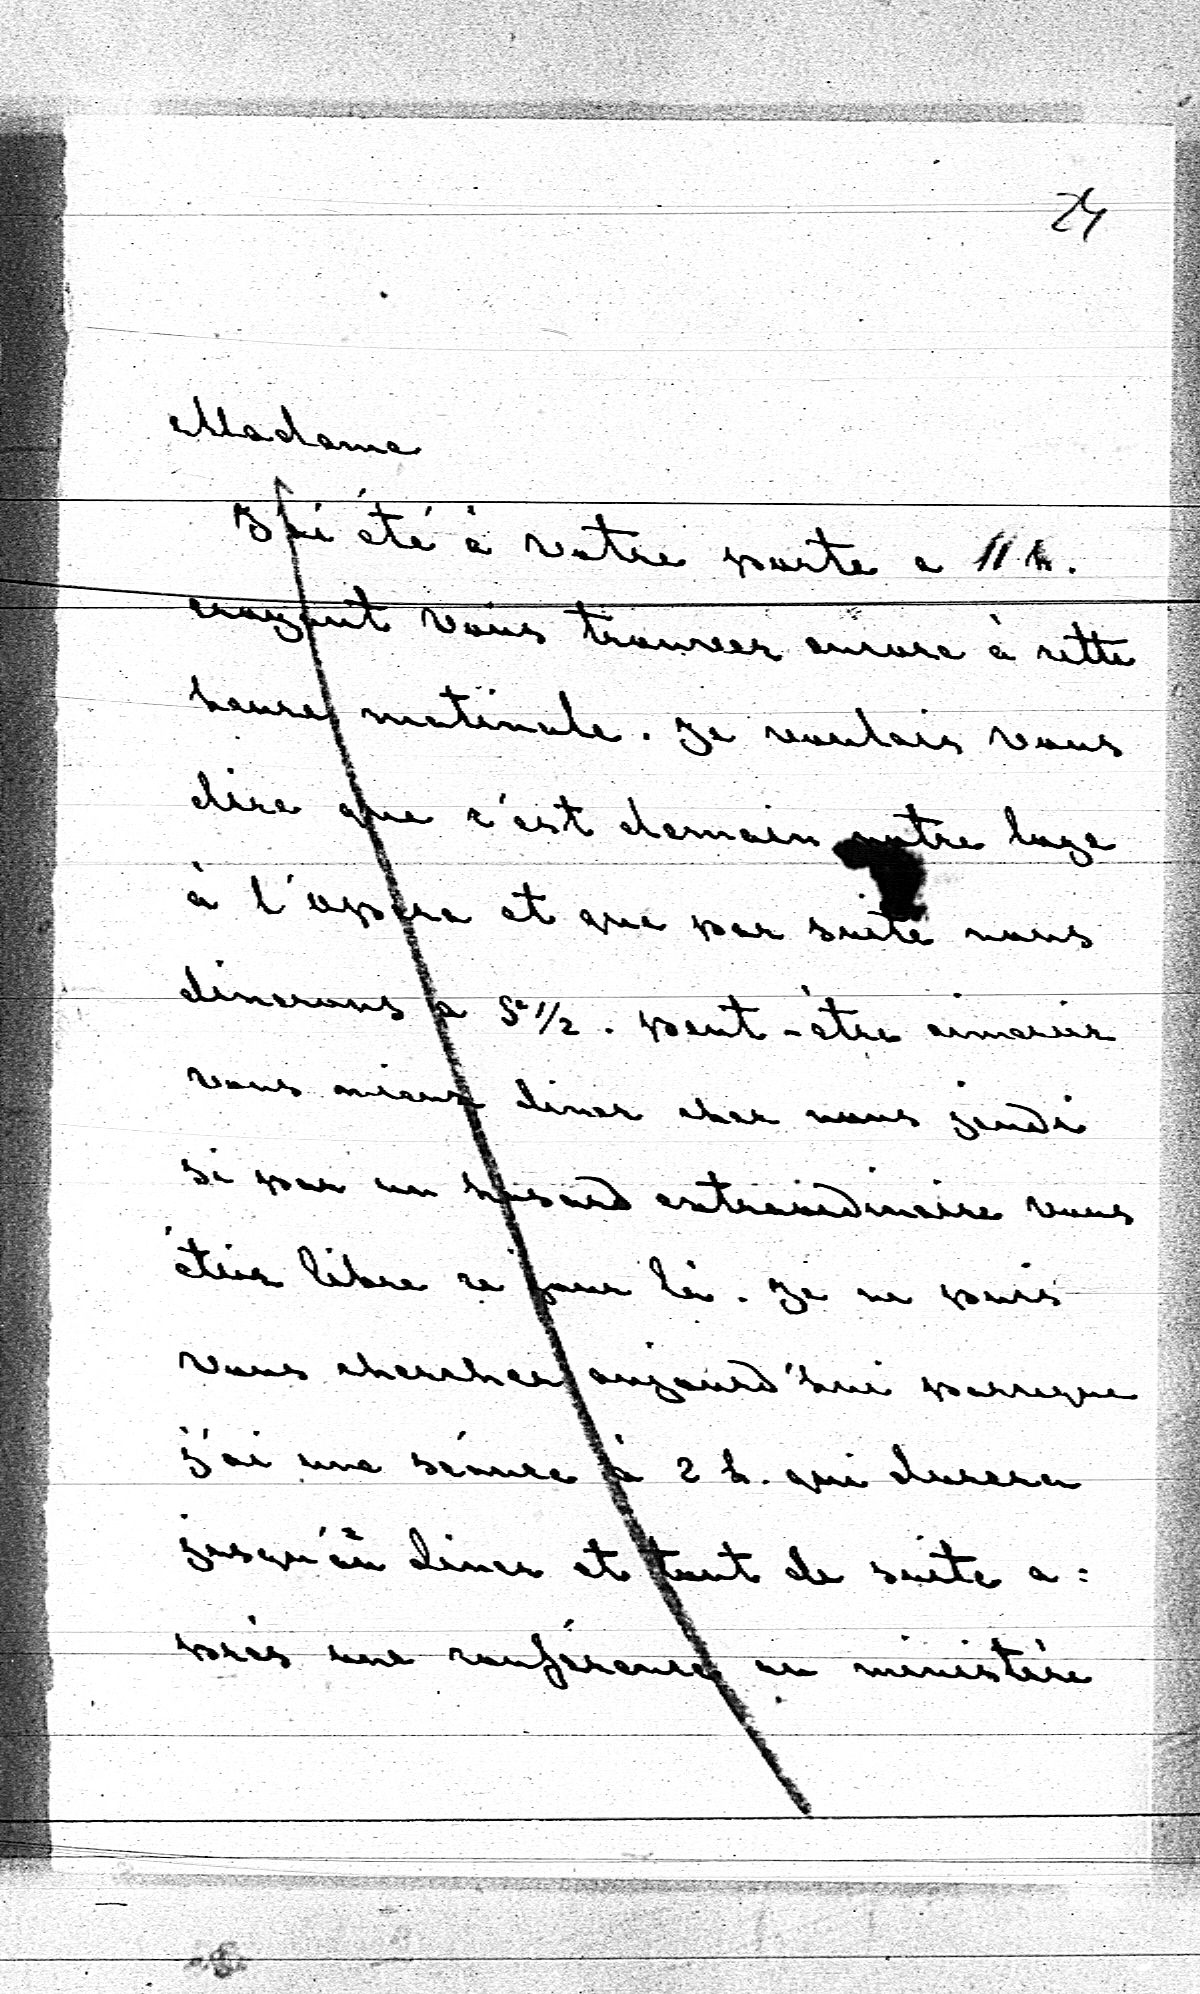 24
Madame
J'ai été à votre porte a 11 h.
croyant vous trouver encore à cette
heure matinale. Je voulais vous
dire que c'est demain notre loge
à l'opera et que par suite nous
dinerons a 5h 1/2. peut-être aimeriez
vous mieux diner chez nous jeudi
si par un hasard extraordinaire vous
étiez libre ce jour là. Je ne puis
vous chercher aujourd'hui parceque
j'ai une séance à 2 h. qui durera
jusqu'au diner et tout de suite a=
près une conférence au ministère